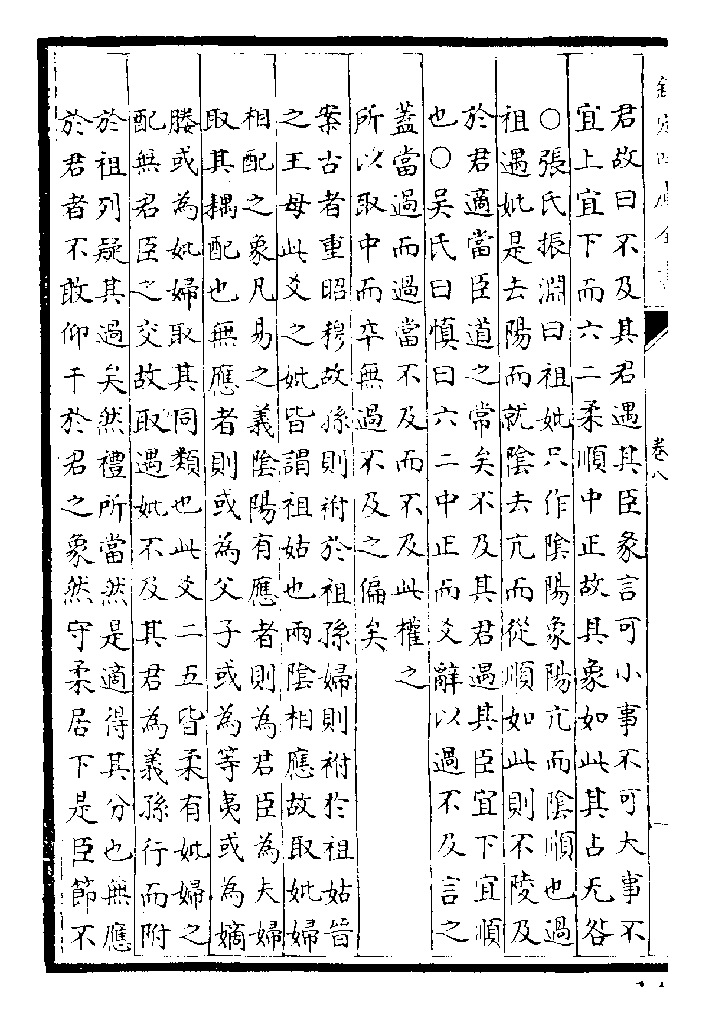 欽定四庫全書
卷八
君故曰不及其君遇其臣彖言可小事不可大事不
宜上宜下而六二柔順中正故其象如此其占无咎
○張氏振淵曰祖妣只作陰陽象陽亢而陰順也過
祖遇妣是去陽而就陰去亢而從順如此則不陵及
於君適當臣道之常矣不及其君遇其臣宜下宜順
也○吳氏曰慎曰六二中正而爻辭以過不及言之
蓋當過而過當不及而不及此權之
所以取中而卒無過不及之偏矣
案古者重昭穆故孫則祔於祖孫婦則祔於祖姑晉
之王母此爻之妣皆謂祖姑也兩陰相應故取妣婦
相配之象凡易之義陰陽有應者則為君臣為夫婦
取其耦配也無應者則或為父子或為等夷或為嫡
媵或為妣婦取其同類也此爻二五皆柔有妣婦之
配無君臣之交故取遇妣不及其君為義孫行而附
於祖列疑其過矣然禮所當然是適得其分也無應
於君者不敢仰干於君之象然守柔居下是臣節不